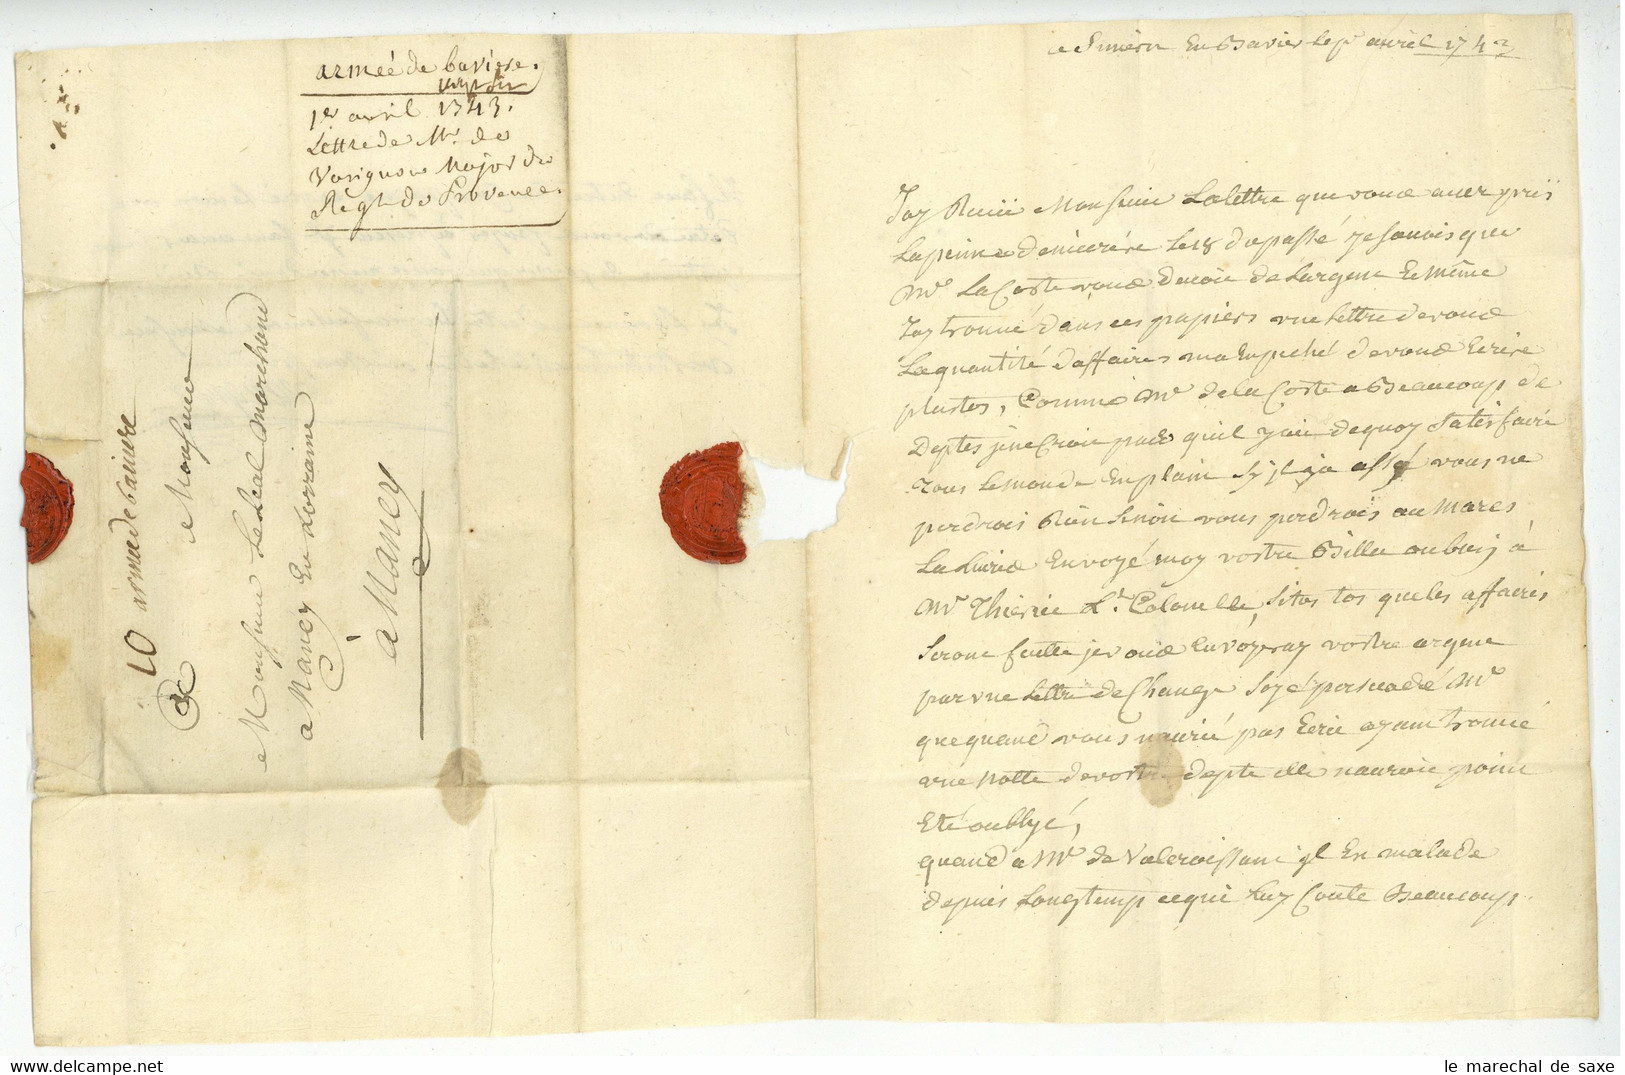 armeé de baviere.
1er avril 1743.
Lettre de Mr. de
Varignon Major du
Regt. de Provence.
10 armée de baviere
A Monsieur
Monsieur Le Leal Marchand
a Nancy En Lorraine
à Nancy
En Baviere le pr avril 1743
J'ay Recüi Monsieur La lettre que vous avez pris
la peinne de m'ecrire le 18 du passé je savois que
Mr La Coste vous devoit de l'argent Et même
J'ay trouvé dans ces papiers une lettre de vous
La quantité d'affaires ma Enpeché de vous Ecrire
plustos, Comme Mr de la Coste a Beaucoup de
Deptes je ne Croit pas qu'il y ait de quoy Satisfaire
Tous le monde En plain Sy il y a assé vous ne
perdrois Rien Sinon vous perdrois au Marc
La Livre Envoyé moy vostre Billet ou bien à
Mr Thierié Lt Colonelle, Sitos tos que les affaires
Seront faitte je vous Envoyeray vostre argent
par une Lettre de Change Soyé persuadé Mr
que quand vous n'aurié pas Ecrit ayant trouvé
une notte de vostre depte elle n'auroit point
Eté oublyé,
quand a Mr de Valcroissant il Est malade
depuis Longtemp ce qui luy Coute Beaucoup.
le marechal de saxe